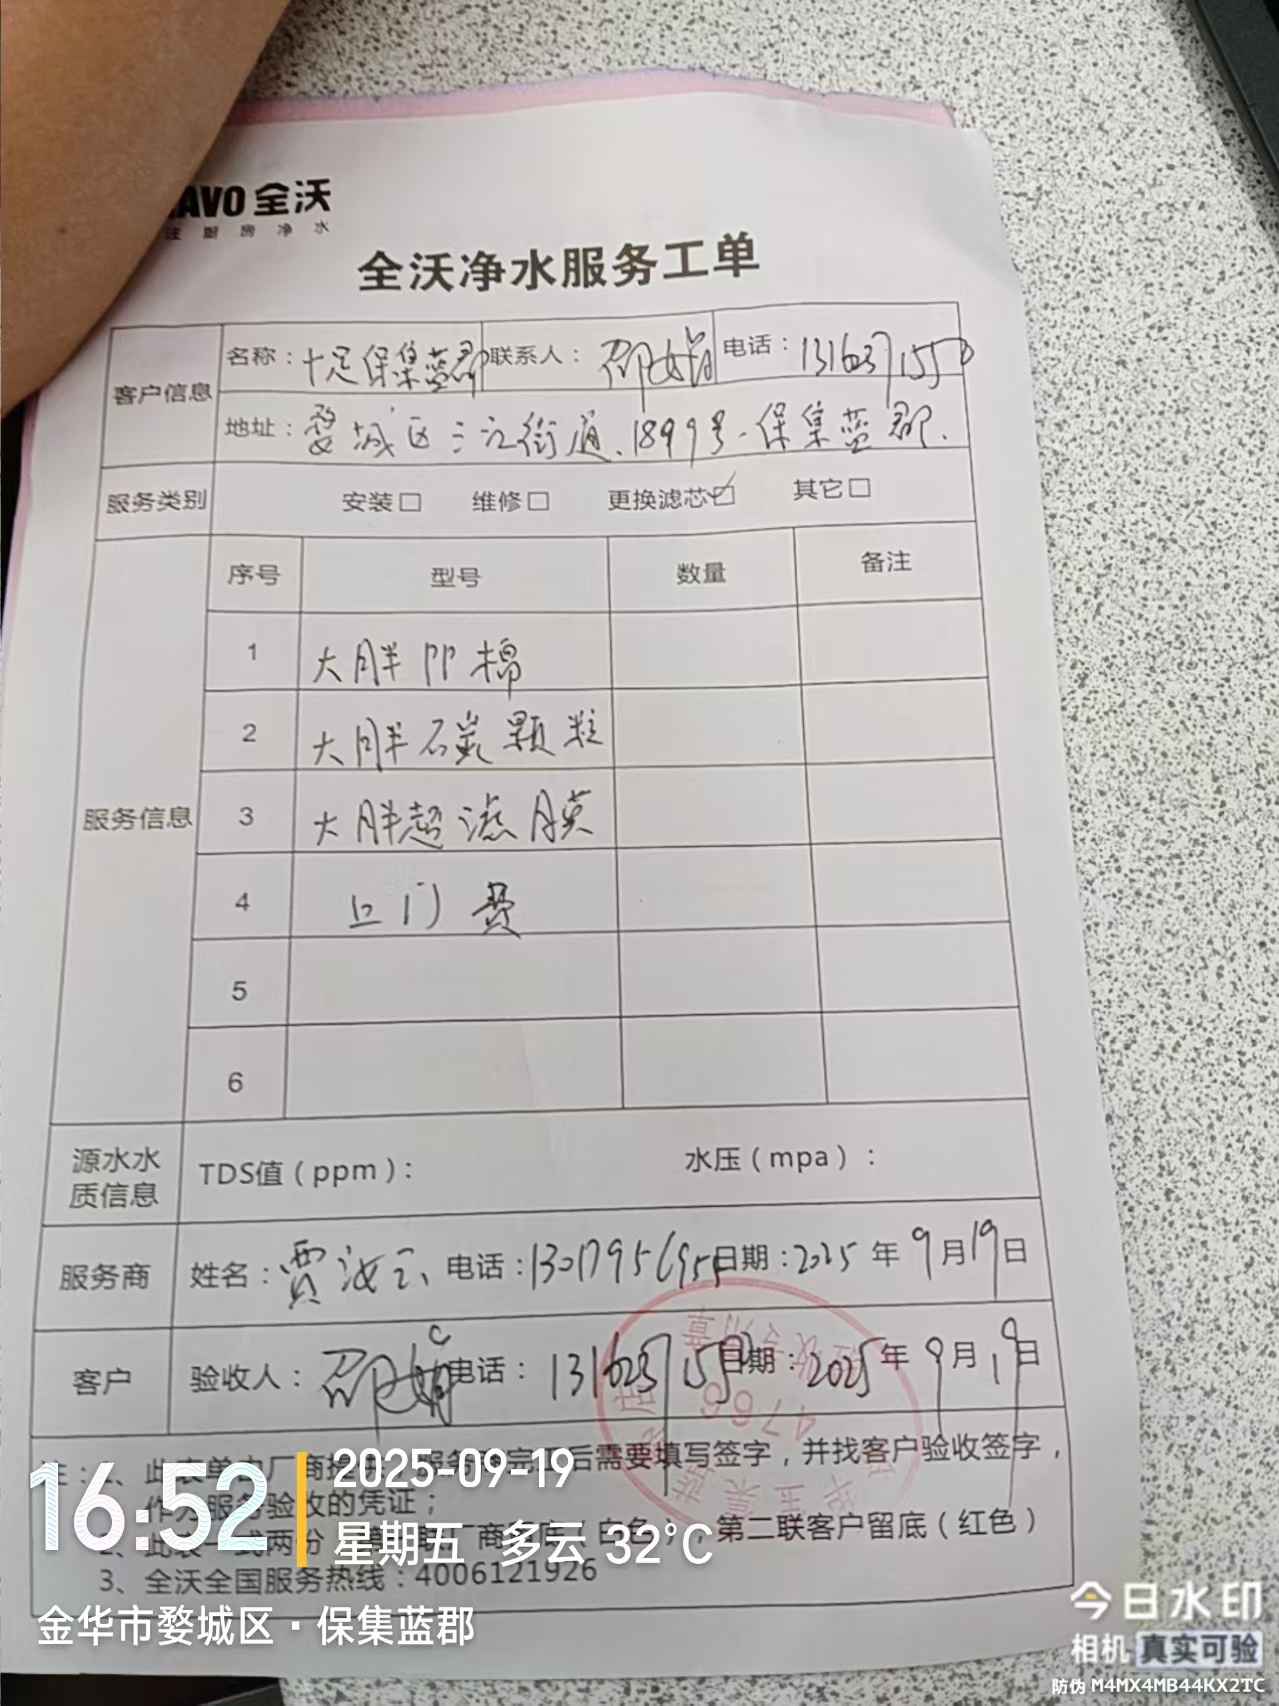 AVO 全沃
注厨房净水
全沃净水服务工单
客户信息 名称：十足保集蓝郡 联系人：邵 电话：
地址：婺城区三江街道.1899号-保集蓝郡.
服务类别 安装□ 维修□ 更换滤芯☑ 其它□
服务信息 序号 型号 数量 备注
1 大胖PP棉
2 大胖石炭颗粒
3 大胖超滤膜
4 上门费
5
6
源水水质信息 TDS值（ppm）： 水压（mpa）：
服务商 姓名：贾 电话：13017956955 日期：2025 年 9 月 19 日
客户 验收人：邵 电话： 日期：2025 年 9 月 19 日
注：1、此表单由厂商 服务 完 后需要填写签字，并找客户验收签字，
作为服务验收的凭证；
2、此表一式两份 厂商 底（白色），第二联客户留底（红色）
3、全沃全国服务热线：4006121926
4766
16:52
2025-09-19
星期五 多云 32°C
金华市婺城区·保集蓝郡
今日水印
相机 真实可验
防伪 M4MX4MB44KX2TC